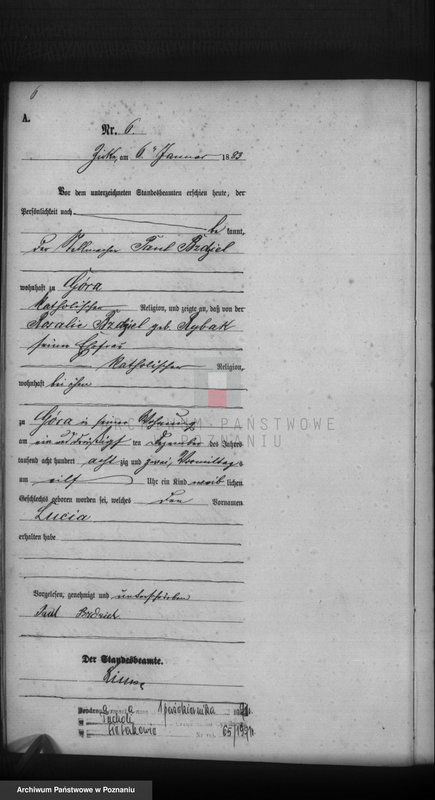 6
A.
Nr. 6.
Zirke, am 6. Januar 1883
Vor dem unterzeichneten Standesbeamten erschien heute, der
Persönlichkeit nach
be kannt,
der Stellmacher Paul Bzdziel
wohnhaft zu Góra
katholischer Religion, und zeigte an, daß von der
Rosalie Bzdziel geb. Rybak
seiner Ehefrau
katholischer Religion,
wohnhaft bei ihm
ARCHIWUM PAŃSTWOWE
W POZNANIU
zu Góra in seiner Wohnung
am ein und dreißigsten Dezember des Jahres
tausend acht hundert acht zig und zwei, Vormittag
um elf Uhr ein Kind weib lichen
Geschlechts geboren worden sei, welches den Vornamen
Lucia
erhalten habe
Vorgelesen, genehmigt und unterschrieben
Paul
Der Standesbeamte.
1 października
65/1971
Archiwum Państwowe w Poznaniu